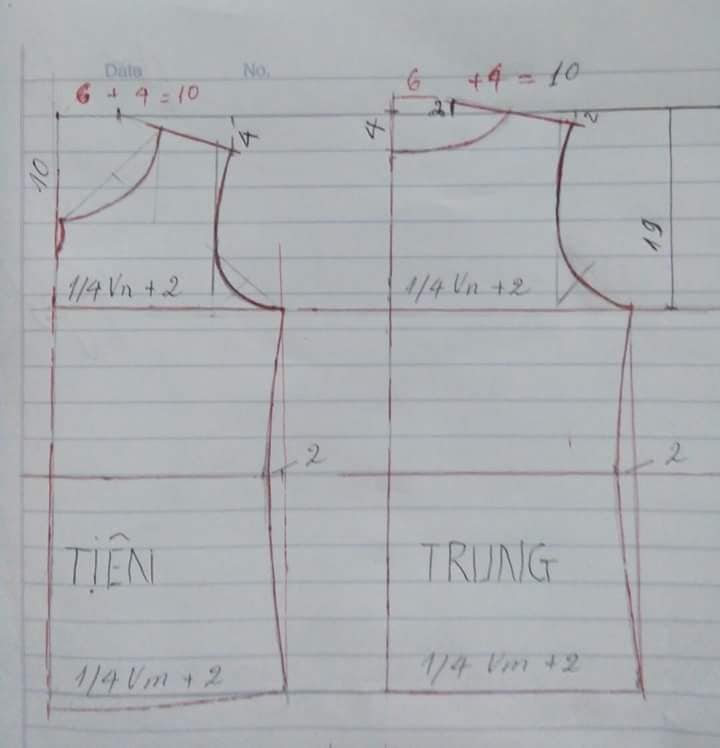 Date No.
6 + 4 = 10
6 + 4 = 10
4
2
2
4
10
19
1/4 Vn + 2
1/4 Vn + 2
2
2
TIỆN
TRUNG
1/4 Vm + 2
1/4 Vm + 2